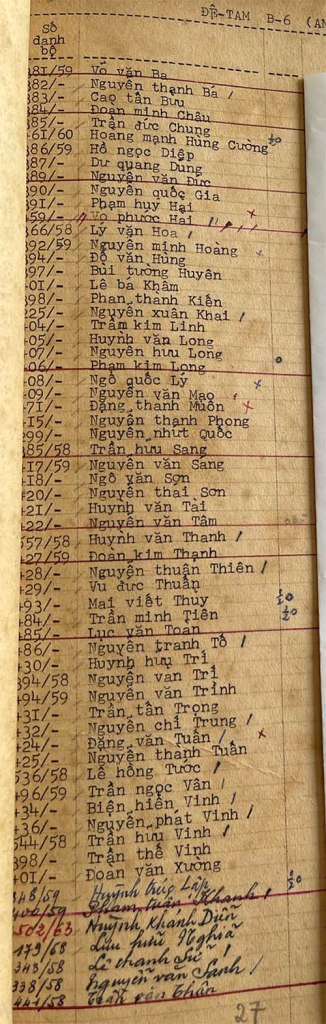 ĐỆ-TAM B-6 (AN
Số
danh
bộ
381/59 Võ văn Ba
382/- Nguyễn thạnh Bá
383/- Cao tấn Bửu
384/- Đoàn minh Châu
385/- Trần đức Chung
461/60 Hoàng mạnh Hùng Cường
386/59 Hồ ngọc Diệp
387/- Dư quang Dung
389/- Nguyễn văn Đức
390/- Nguyễn quốc Gia
391/- Phạm huy Hải
59/- Võ phước Hai
366/58 Lý văn Hoa
392/59 Nguyễn minh Hoàng
394/- Đỗ văn Hùng
397/- Bùi tường Huyên
40I/- Lê bá Khâm
398/- Phan thanh Kiến
225/- Nguyễn xuân Khai
404/- Trầm kim Linh
405/- Huỳnh văn Long
407/- Nguyễn hữu Long
406/- Phạm kim Long
408/- Ngô quốc Lý
409/- Nguyễn văn Mạo
47I/- Đặng thanh Muôn
4I5/- Nguyễn thanh Phong
399/- Nguyễn nhựt Quốc
385/58 Trần hữu Sang
4I7/59 Nguyễn văn Sáng
4I8/- Ngô văn Sơn
420/- Nguyễn thái Sơn
42I/- Huỳnh văn Tài
422/- Nguyễn văn Tâm
557/58 Huỳnh văn Thanh
427/59 Đoàn kim Thạnh
428/- Nguyễn thuận Thiên
429/- Vu đức Thuấn
493/- Mai viết Thuy
484/- Trần minh Tiên
485/- Lục văn Toan
486/- Nguyễn tranh Tố
430/- Huỳnh hữu Trí
394/58 Nguyễn văn Trí
494/59 Nguyễn văn Trinh
43I/- Trần tấn Trọng
432/- Nguyễn chí Trung
424/- Đặng văn Tuấn
425/- Nguyễn thanh Tuấn
536/58 Lê hồng Tước
496/59 Trần ngọc Vân
434/- Biện hiển Vinh
436/- Nguyễn phát Vinh
544/58 Trần hữu Vinh
398/- Trần thế Vinh
40I/- Đoàn văn Xường
348/59 Huỳnh Lập
400/59 Phạm tuấn Khanh
502/63 Huỳnh Khánh Diễn
179/68 Lưu hữu Nghĩa
343/58 Lê thanh Sử
338/58 Nguyễn văn Sanh
441/58 Trần văn Thân
27